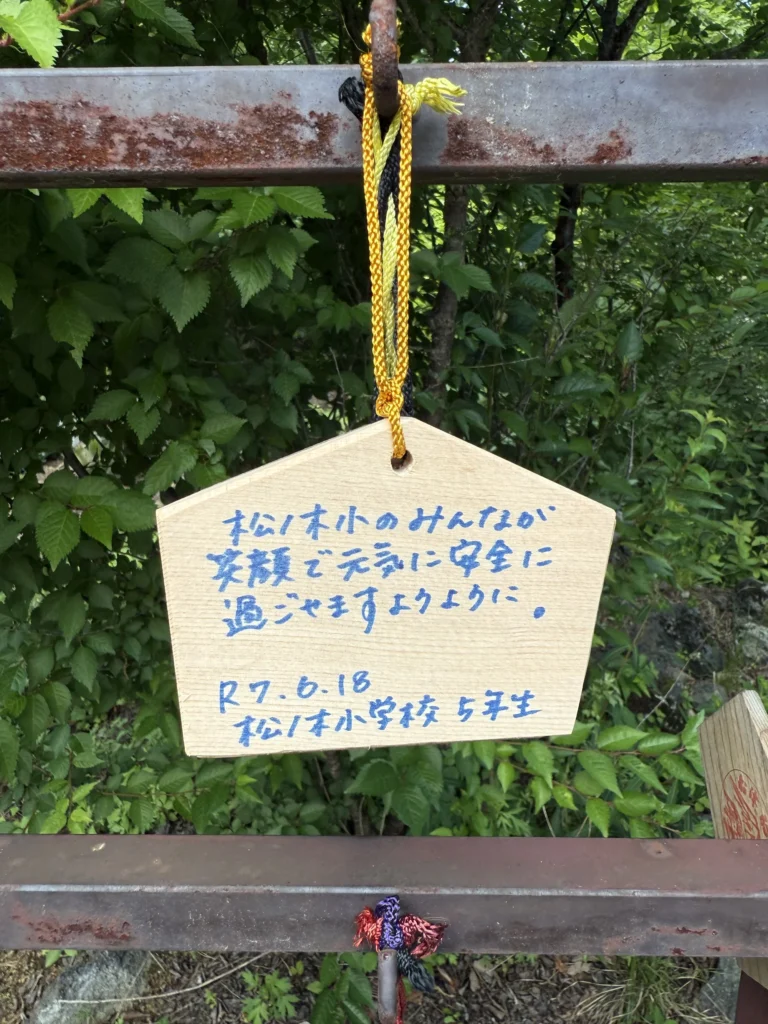 松ノ木小のみんなが
笑顔で元気に安全に
過ごせますように。
R7.6.18
松ノ木小学校 5年生